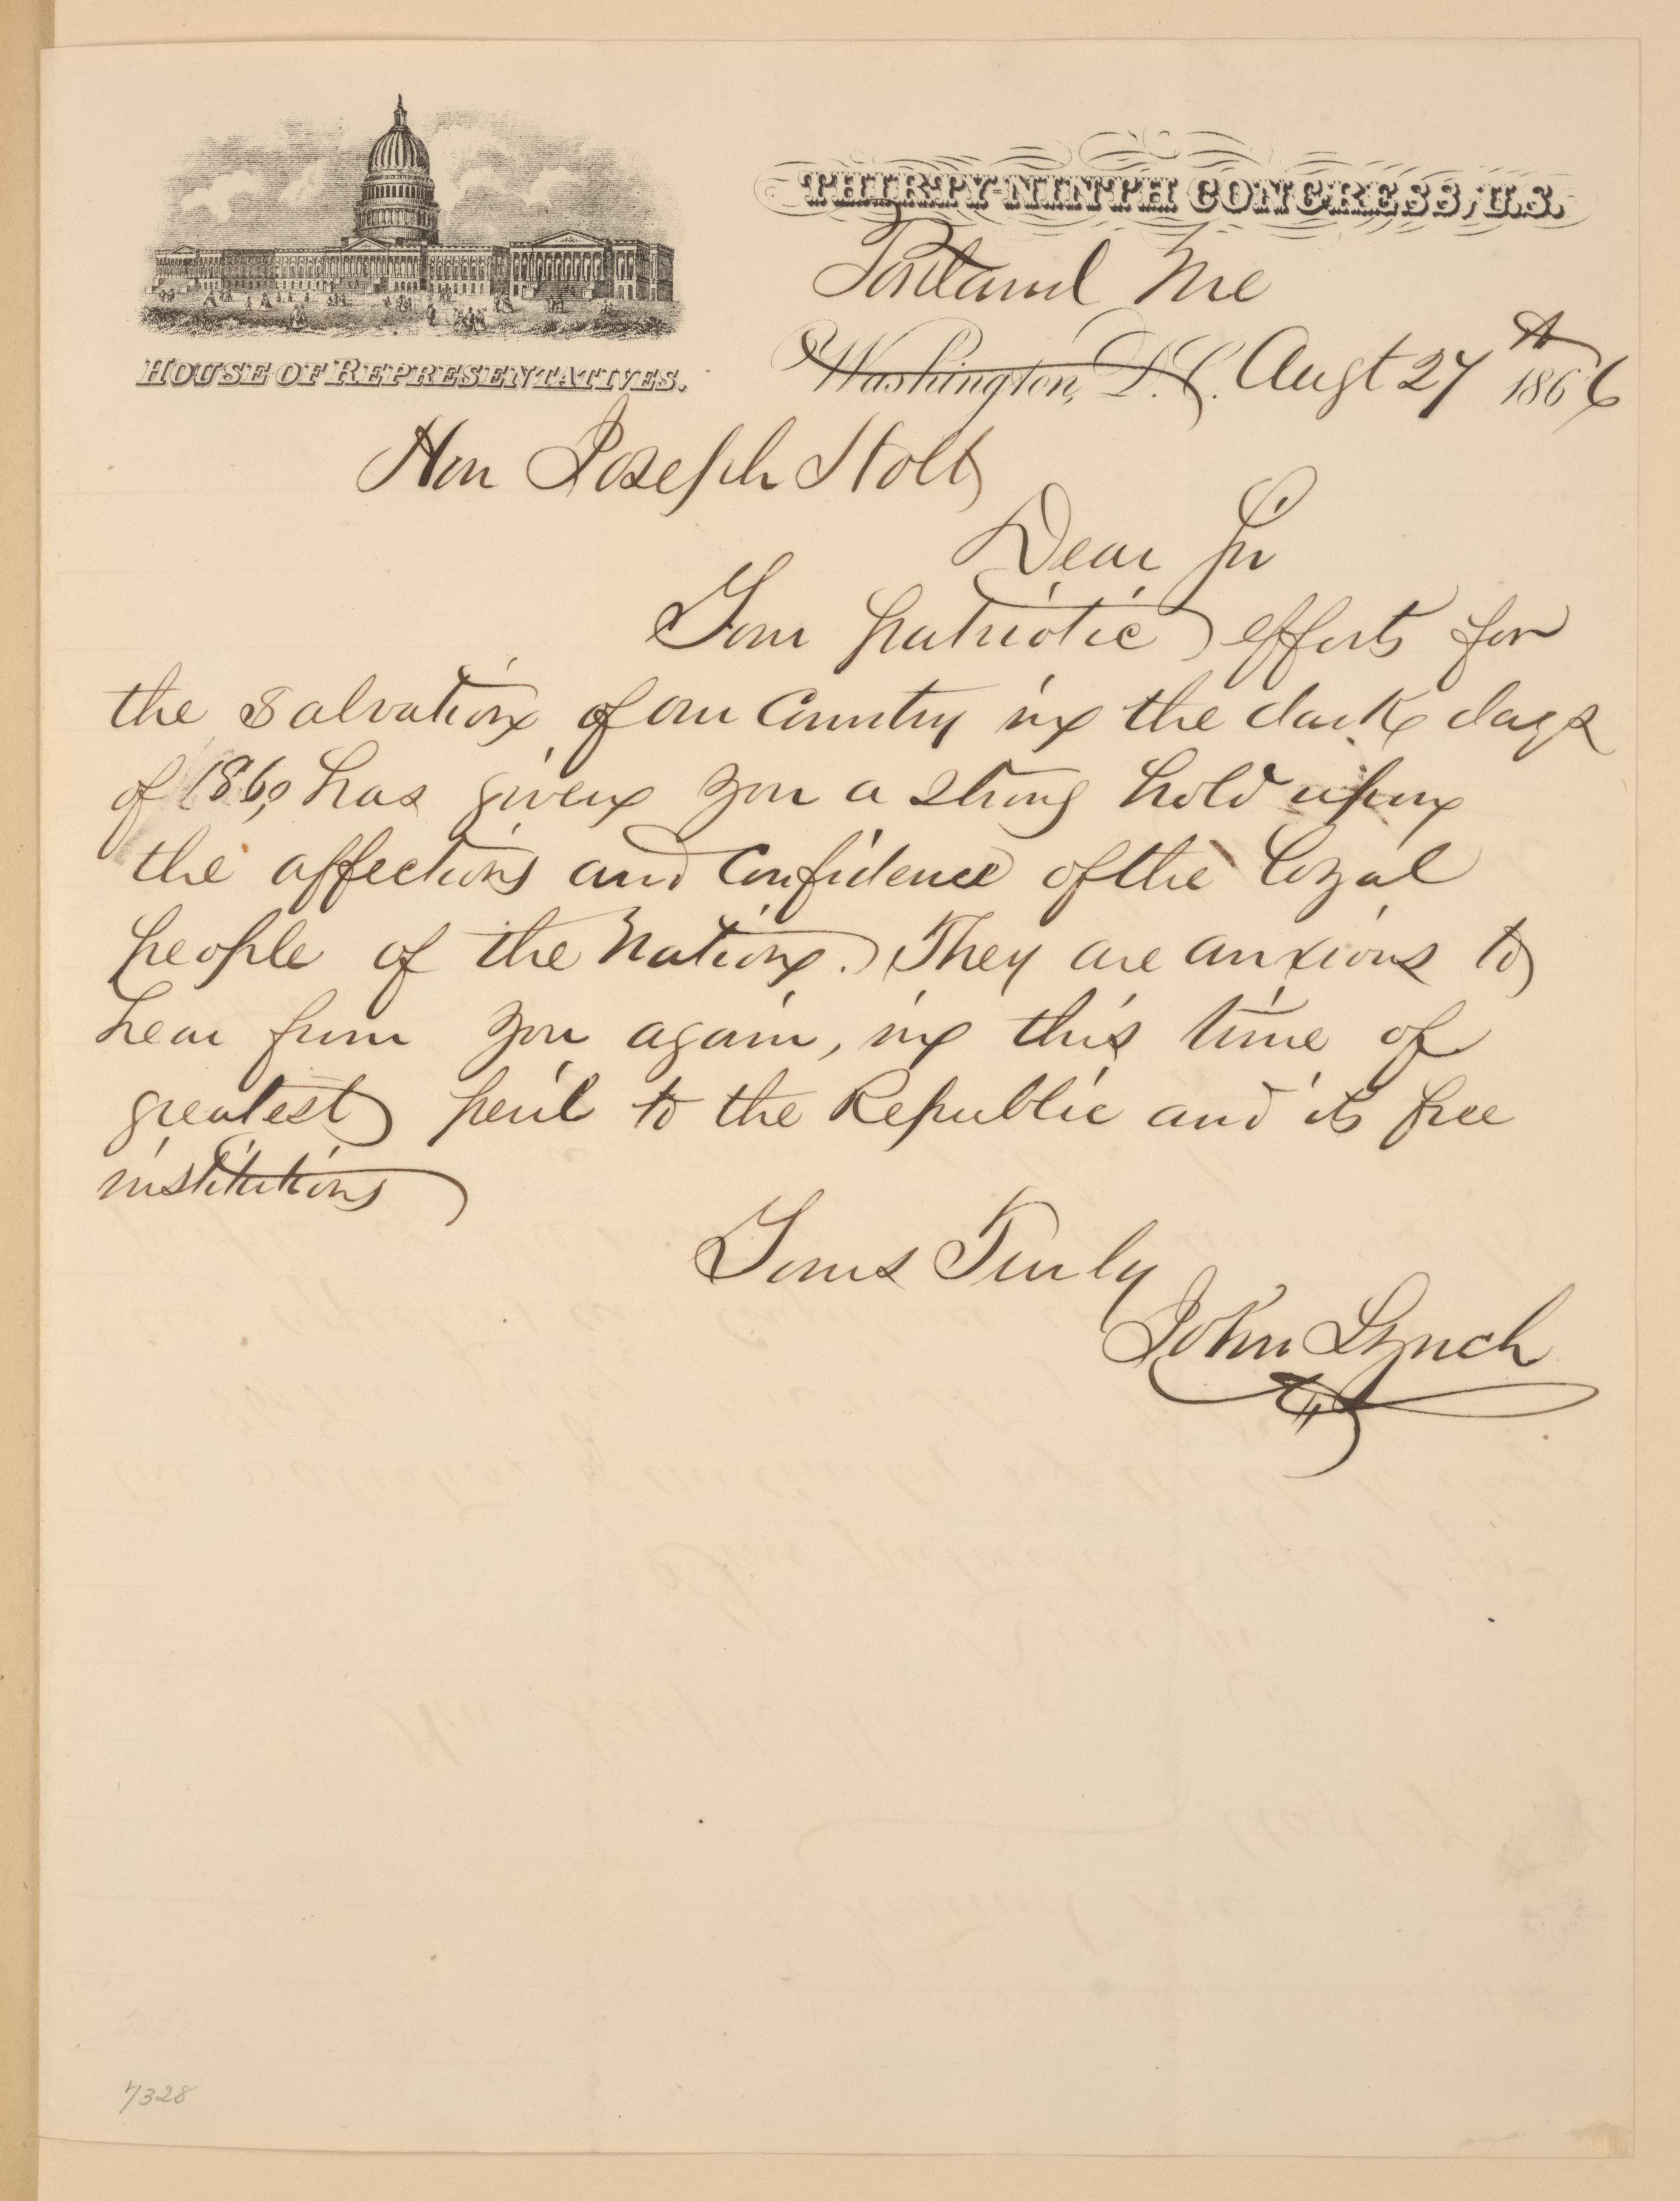 THIRTY-NINTH CONGRESS, U.S.
HOUSE OF REPRESENTATIVES.
Portland Me
Washington, D.C. Augt 27th 1866
Hon Joseph Holt
Dear Sir
Your patriotic efforts for
the salvation of our Country in the dark days
of 1860, has given you a strong hold upon
the affections and Confidence of the loyal
people of the Nation. They are anxious to
hear from you again, in this time of
greatest peril to the Republic and its free
institutions
Yours Truly
John Lynch
7328